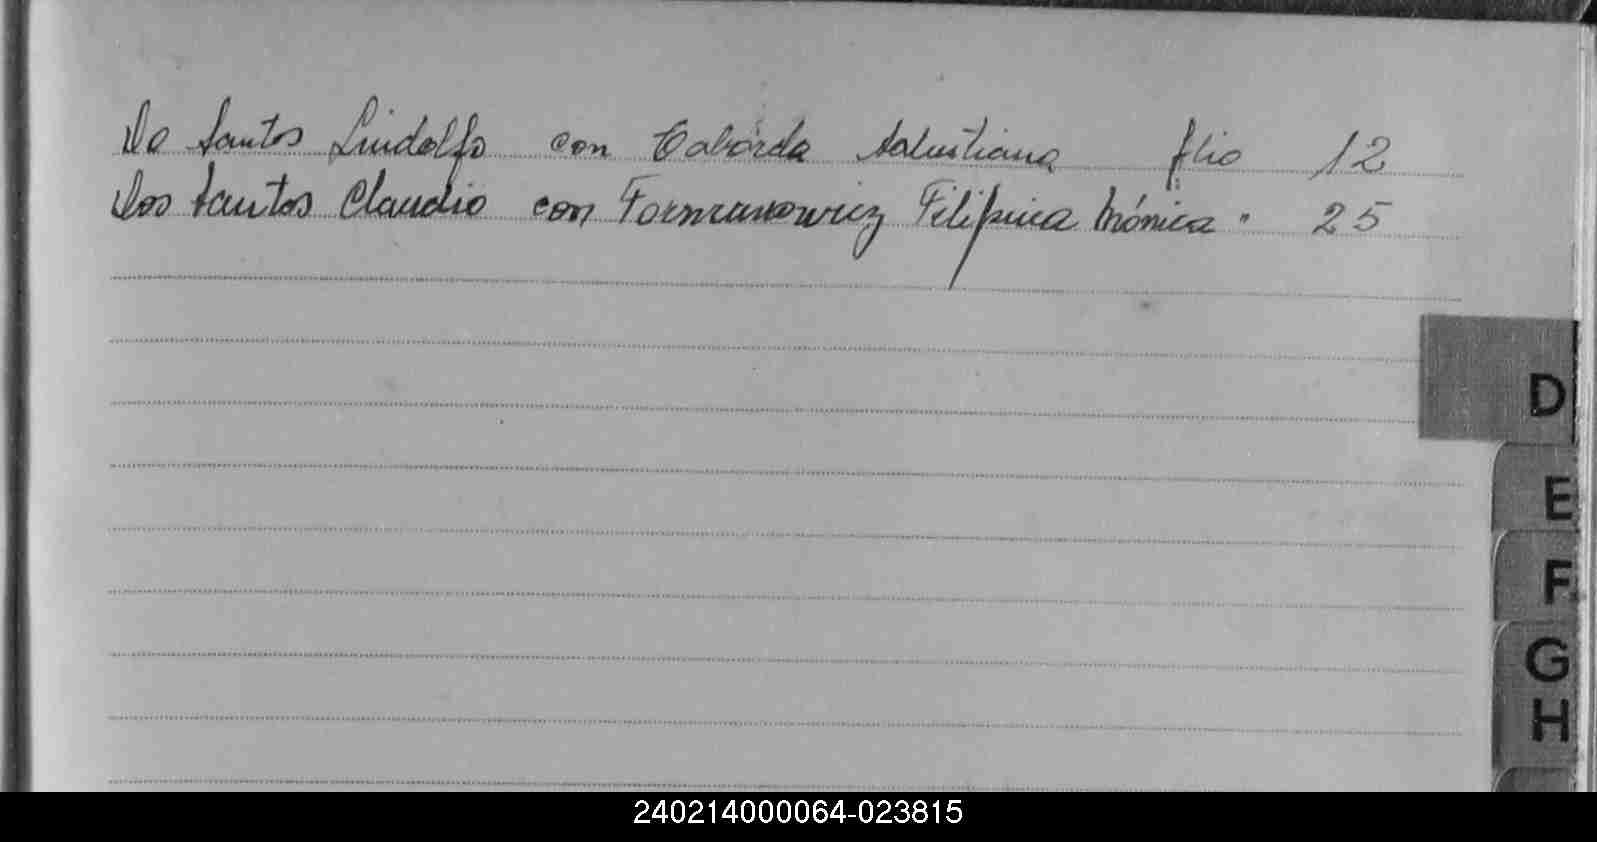 De Santos Lindolfo con Taborda Salustiana flio 12
Dos Santos Claudio con Formanowicz Filipina Mónica " 25
D
E
F
G
H
240214000064-023815